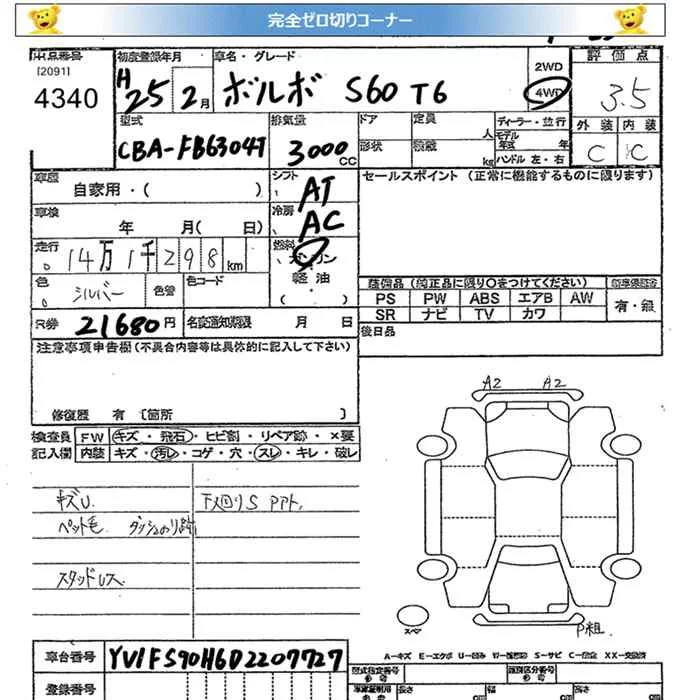 完全ゼロ切りコーナー
出品番号 初度登録年月 車名・グレード 2WD 評価点
[2091]
4340 H25 2月 ボルボ S60 T6 4WD 3.5
型式 排気量 ドア 定員 人 ディーラー・並行 外装 内装
CBA-FB6304T 3000CC 形状 積載 kg モデル年式 年 ハンドル 左・右 C C
車歴 自家用・( ) シフト AT セールスポイント (正常に機能するものに限ります)
車検 年 月( 日) 冷房 AC
走行 14万1千298km 燃料 ガソリン
色 シルバー 色替 色コード 軽油 ( ・ )
装備品 (純正品に限り○をつけてください)
PS PW ABS エアB AW 有・無
SR ナビ TV カワ
R券 21680円 名変通知期限 月 日 後日品
注意事項申告欄(不具合内容等は具体的に記入して下さい)
修復歴 有 [箇所 ]
検査員 FW キズ・飛石・ヒビ割・リペア跡・×要
記入欄 内装 キズ・汚レ・コゲ・穴・スレ・キレ・破レ
キズU 下回りS
ペット毛
スタッドレス
A2 A2
スペア
P組
A-キズ E-エクボ U-凹み S-サビ XX-交換済
車台番号 YV1FS90H6D2207727 型式指定番号 類別区分番号
登録番号 長さ 幅 高さ